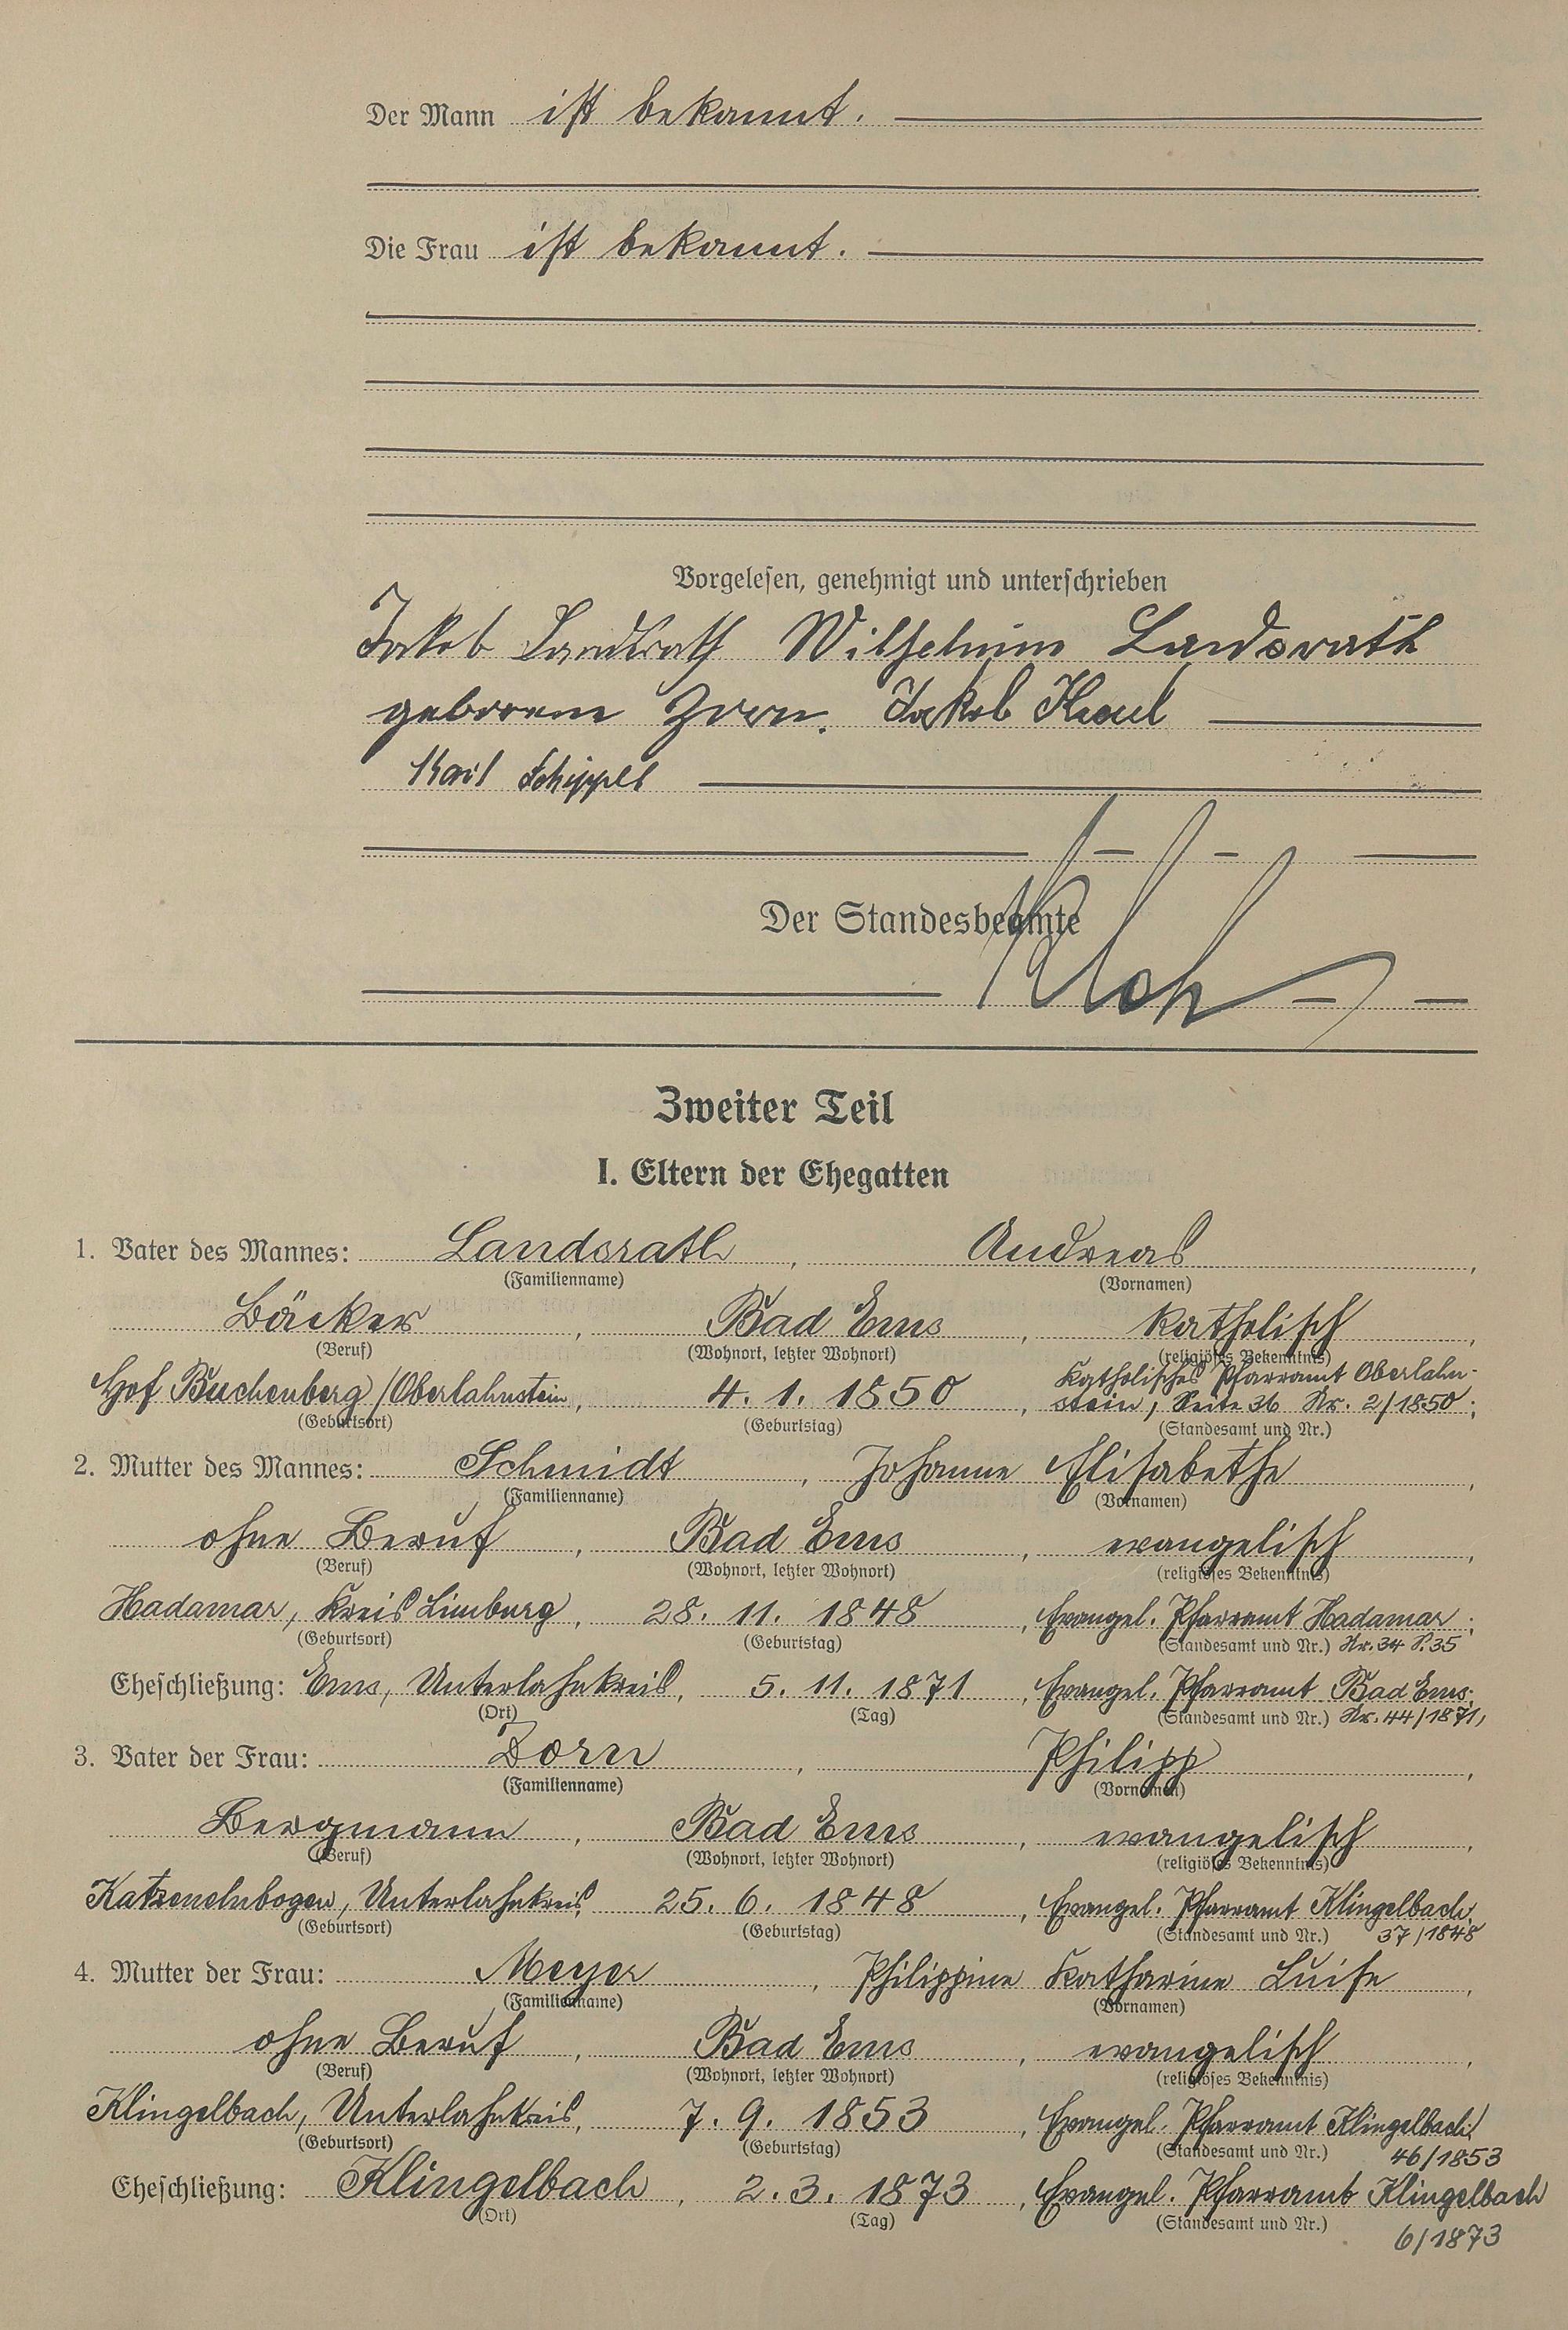 Der Mann ist bekannt.
Die Frau ist bekannt.
Vorgelesen, genehmigt und unterschrieben
Jakob Landsrath Wilhelmine Landsrath
geborene Zorn. Jakob Kaul
Karl Schippel
Der Standesbeamte
Zweiter Teil
I. Eltern der Ehegatten
1. Vater des Mannes: Landsrath, Andreas,
(Familienname) (Vornamen)
Bäcker, Bad Ems, katholisch,
(Beruf) (Wohnort, letzter Wohnort) (religiöses Bekenntnis)
Katholisches Pfarramt Oberlahn-
Hof Buchenberg/Oberlahnstein, 4. 1. 1850, stein, Seite 36 Nr. 2/1850;
(Geburtsort) (Geburtstag) (Standesamt und Nr.)
2. Mutter des Mannes: Schmidt, Johanne Elisabethe,
(Familienname) (Vornamen)
ohne Beruf, Bad Ems, evangelisch,
(Beruf) (Wohnort, letzter Wohnort) (religiöses Bekenntnis)
Hadamar, Kreis Limburg, 28. 11. 1848, Evangel. Pfarramt Hadamar;
(Geburtsort) (Geburtstag) (Standesamt und Nr.) Nr. 34 S. 35
Eheschließung: Ems, Unterlahnkreis, 5. 11. 1871, Evangel. Pfarramt Bad Ems;
(Ort) (Tag) (Standesamt und Nr.) Nr. 44/1871,
3. Vater der Frau: Zorn, Philipp,
(Familienname) (Vornamen)
Bergmann, Bad Ems, evangelisch,
(Beruf) (Wohnort, letzter Wohnort) (religiöses Bekenntnis)
Katzenelnbogen, Unterlahnkreis, 25. 6. 1848, Evangel. Pfarramt Klingelbach;
(Geburtsort) (Geburtstag) (Standesamt und Nr.) 37/1848
4. Mutter der Frau: Meyer, Philippine Katharine Luise,
(Familienname) (Vornamen)
ohne Beruf, Bad Ems, evangelisch,
(Beruf) (Wohnort, letzter Wohnort) (religiöses Bekenntnis)
Klingelbach, Unterlahnkreis, 7. 9. 1853, Evangel. Pfarramt Klingelbach;
(Geburtsort) (Geburtstag) (Standesamt und Nr.) 46/1853
Eheschließung: Klingelbach, 2. 3. 1873, Evangel. Pfarramt Klingelbach
(Ort) (Tag) (Standesamt und Nr.)
6/1873